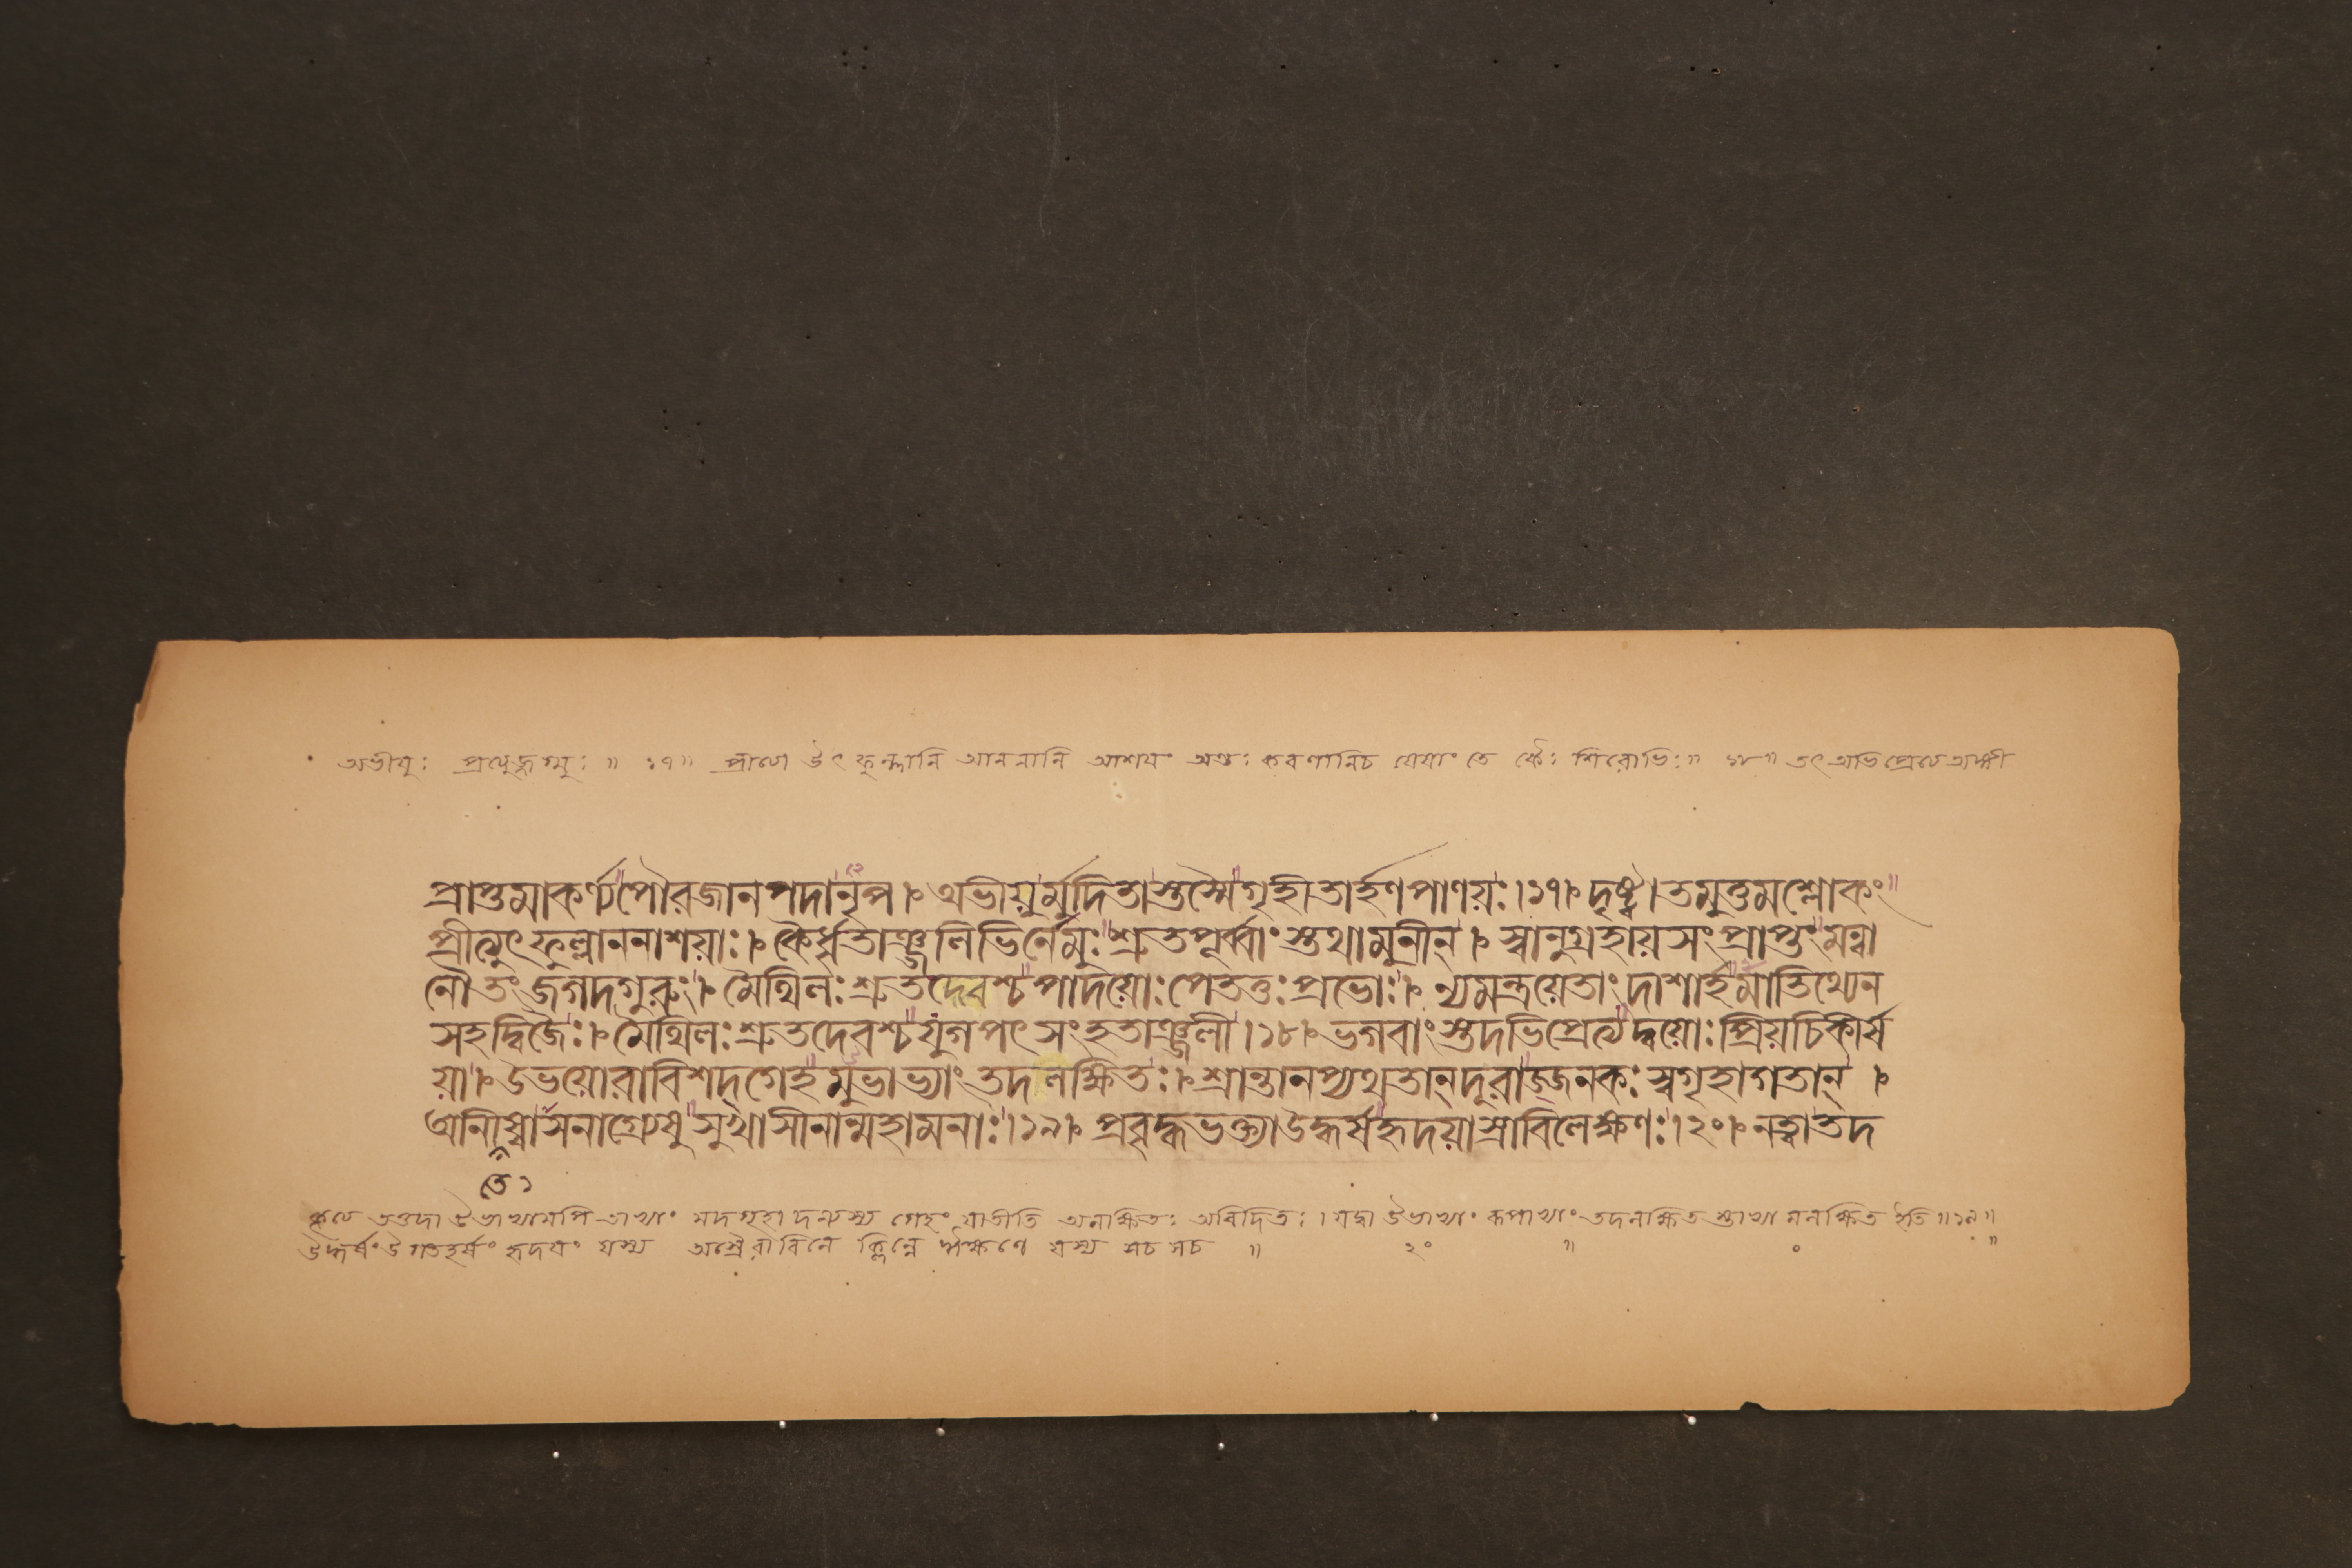 অভীয়ুঃ প্রত্যুজ্জগ্মুঃ ॥ ১৭॥ প্রীত্যা উৎফুল্লানি আননানি আশয়ঃ অন্তঃকরণানিচ যেষাং তে কৈঃ শিরোভিঃ॥ ১৮॥ তৎ অভিপ্রেত্য অঙ্গী
প্রাপ্তমাকর্ণ্যপৌরজানপদানৃপ । অভীয়ুর্মুদিতাস্তস্মৈগৃহীতার্হণপাণয়ঃ।১৭। দৃষ্ট্বাতমুত্তমশ্লোকং
প্রীত্যুৎফুল্লাননাশয়াঃ। কৈর্ধৃতাঞ্জলিভির্নেমুঃশ্রুতপূর্ব্বাংস্তথামুনীন্। স্বানুগ্রহায়সংপ্রাপ্তং মন্বা
নৌতং জগদ্গুরুং। মৈথিলঃশ্রুতদেবশ্চপাদয়োঃপেততুঃপ্রভোঃ। ন্যমন্ত্রয়েতাংদাশার্হমাতিথ্যেন
সহদ্বিজৈঃ। মৈথিলঃশ্রুতদেবশ্চযুগপৎসংহতাঞ্জলী।১৮। ভগবাংস্তদভিপ্রেত্যদ্বয়োঃপ্রিয়চিকীর্ষ
য়া। উভয়োরাবিশদ্গেহমুভাভ্যাং তদলক্ষিতঃ। শ্রান্তানপ্যথতান্দূরাজ্জনকঃস্বগৃহাগতান্ ।
আনীয়্বাসনাগ্রেষুসুখাসীনান্মহামনাঃ।১৯। প্রবৃদ্ধভক্ত্যাউদ্ধর্ষহৃদয়াস্রাবিলেক্ষণঃ।২০। নত্বাতদ
তে১
কৃত্য তত্তদা উভাভ্যামপি তাভ্যাং মদগৃহাদন্যস্য গেহং যাতীতি অলক্ষিতঃ অবিদিতঃ। যদ্বা উভাভ্যাং রূপাভ্যাং তদলক্ষিত স্তাভ্যা মলক্ষিত ইতি॥১৯॥
উদ্ধর্ষং উগতহর্ষং হৃদয়ং যস্য অশ্রৈরাবিলে ক্লিন্নে ঈক্ষণে যস্য সচ সচ ॥ ২০ ॥